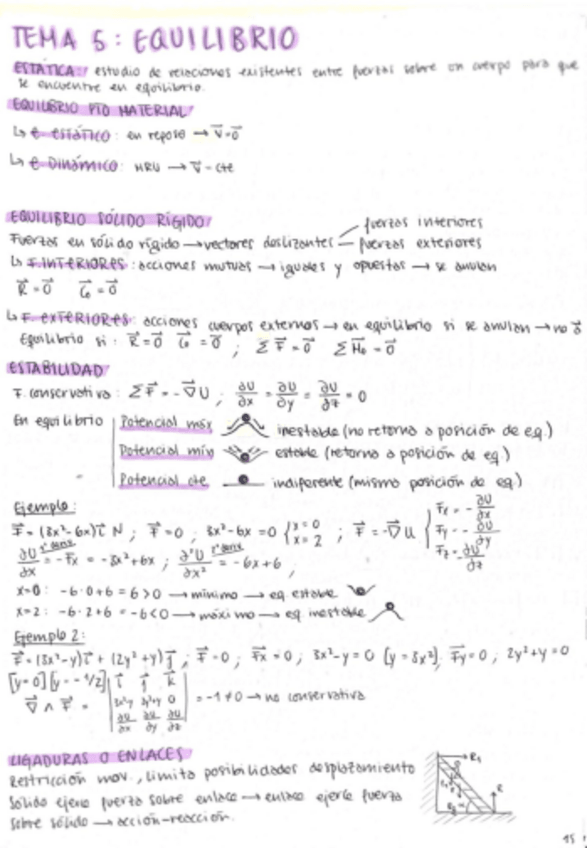 TEMA 5: EQUILIBRIO
ESTÁTICA: estudio de relaciones existentes entre fuerzas sobre un cuerpo para que
se encuentre en equilibrio.
EQUILIBRIO PTO MATERIAL
↳ e. estático: en reposo → v⃗=0⃗
↳ e. Dinámico: MRU → v⃗ - cte
EQUILIBRIO SÓLIDO RÍGIDO
fuerzas interiores
Fuerzas en sólido rígido → vectores deslizantes
fuerzas exteriores
↳ F. INTERIORES: acciones mutuas → iguales y opuestas → se anulan
R⃗=0⃗
↳ F. EXTERIORES: acciones cuerpos externos → en equilibrio si se anulan → no a⃗
Equilibrio si: R⃗=0⃗ ; ΣF⃗=0⃗
ESTABILIDAD
F. conservativa: ΣF⃗ = -∇⃗U ; ∂U/∂x = ∂U/∂y = ∂U/∂z = 0
En equilibrio
Potencial máx inestable (no retorna a posición de eq.)
Potencial mín estable (retorna a posición de eq.)
Potencial cte indiferente (misma posición de eq.)
Ejemplo:
F⃗ = (3x²-6x)i⃗ N ; F⃗=0 ; 3x²-6x=0 { x=0 x=2 ; F⃗=-∇⃗U { Fx = -∂U/∂x Fy = -∂U/∂y Fz = -∂U/∂z
∂U/∂x = -Fx = -3x²+6x ; ∂²U/∂x² = -6x+6 ;
x=0: -6·0+6=6>0 → mínimo → eq. estable
x=2: -6·2+6=-6<0 → máximo → eq. inestable
Ejemplo 2:
F⃗ = (3x²-y)i⃗ + (2y²+y)j⃗ ; F⃗=0 ; Fx=0 ; 3x²-y=0 [y=3x²]. Fy=0 ; 2y²+y=0
[y=0] [y=-1/2] i⃗ j⃗ k⃗
∇⃗ ∧ F⃗ = 3x²-y 2y²+y 0 = -1≠0 → no conservativa
∂U/∂x ∂U/∂y ∂U/∂z
LIGADURAS O ENLACES
Restricción mov., limita posibilidades desplazamiento
Sólido ejerce fuerza sobre enlace → enlace ejerce fuerza
sobre sólido → acción-reacción.
15